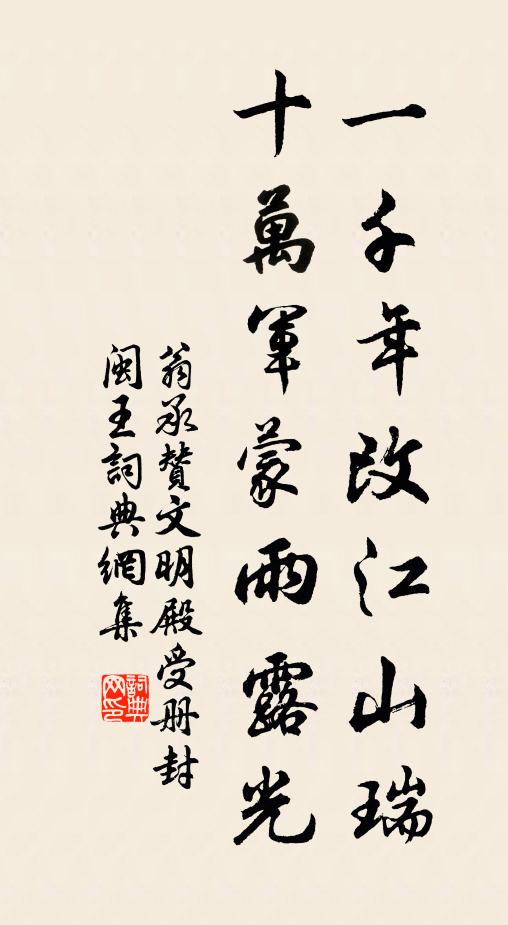 一千年改江山瑞
十萬軍蒙雨露光
翁承贊文明殿受册封
閩王詞典網集
詞典
网印